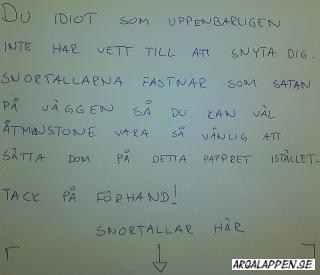 DU IDIOT SOM UPPENBARLIGEN
INTE HAR VETT TILL ATT SNYTA DIG.
SNORTALLARNA FASTNAR SOM SATAN
PÅ VÄGGEN SÅ DU KAN VÄL
ÅTMINSTONE VARA SÅ VÄNLIG ATT
SÄTTA DOM PÅ DETTA PAPPRET ISTÄLLET.
TACK PÅ FÖRHAND!
SNORTALLAR HÄR
ARGALAPPEN.SE